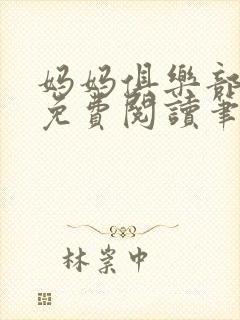 妈妈俱樂部
免費閱讀筆
林崇中